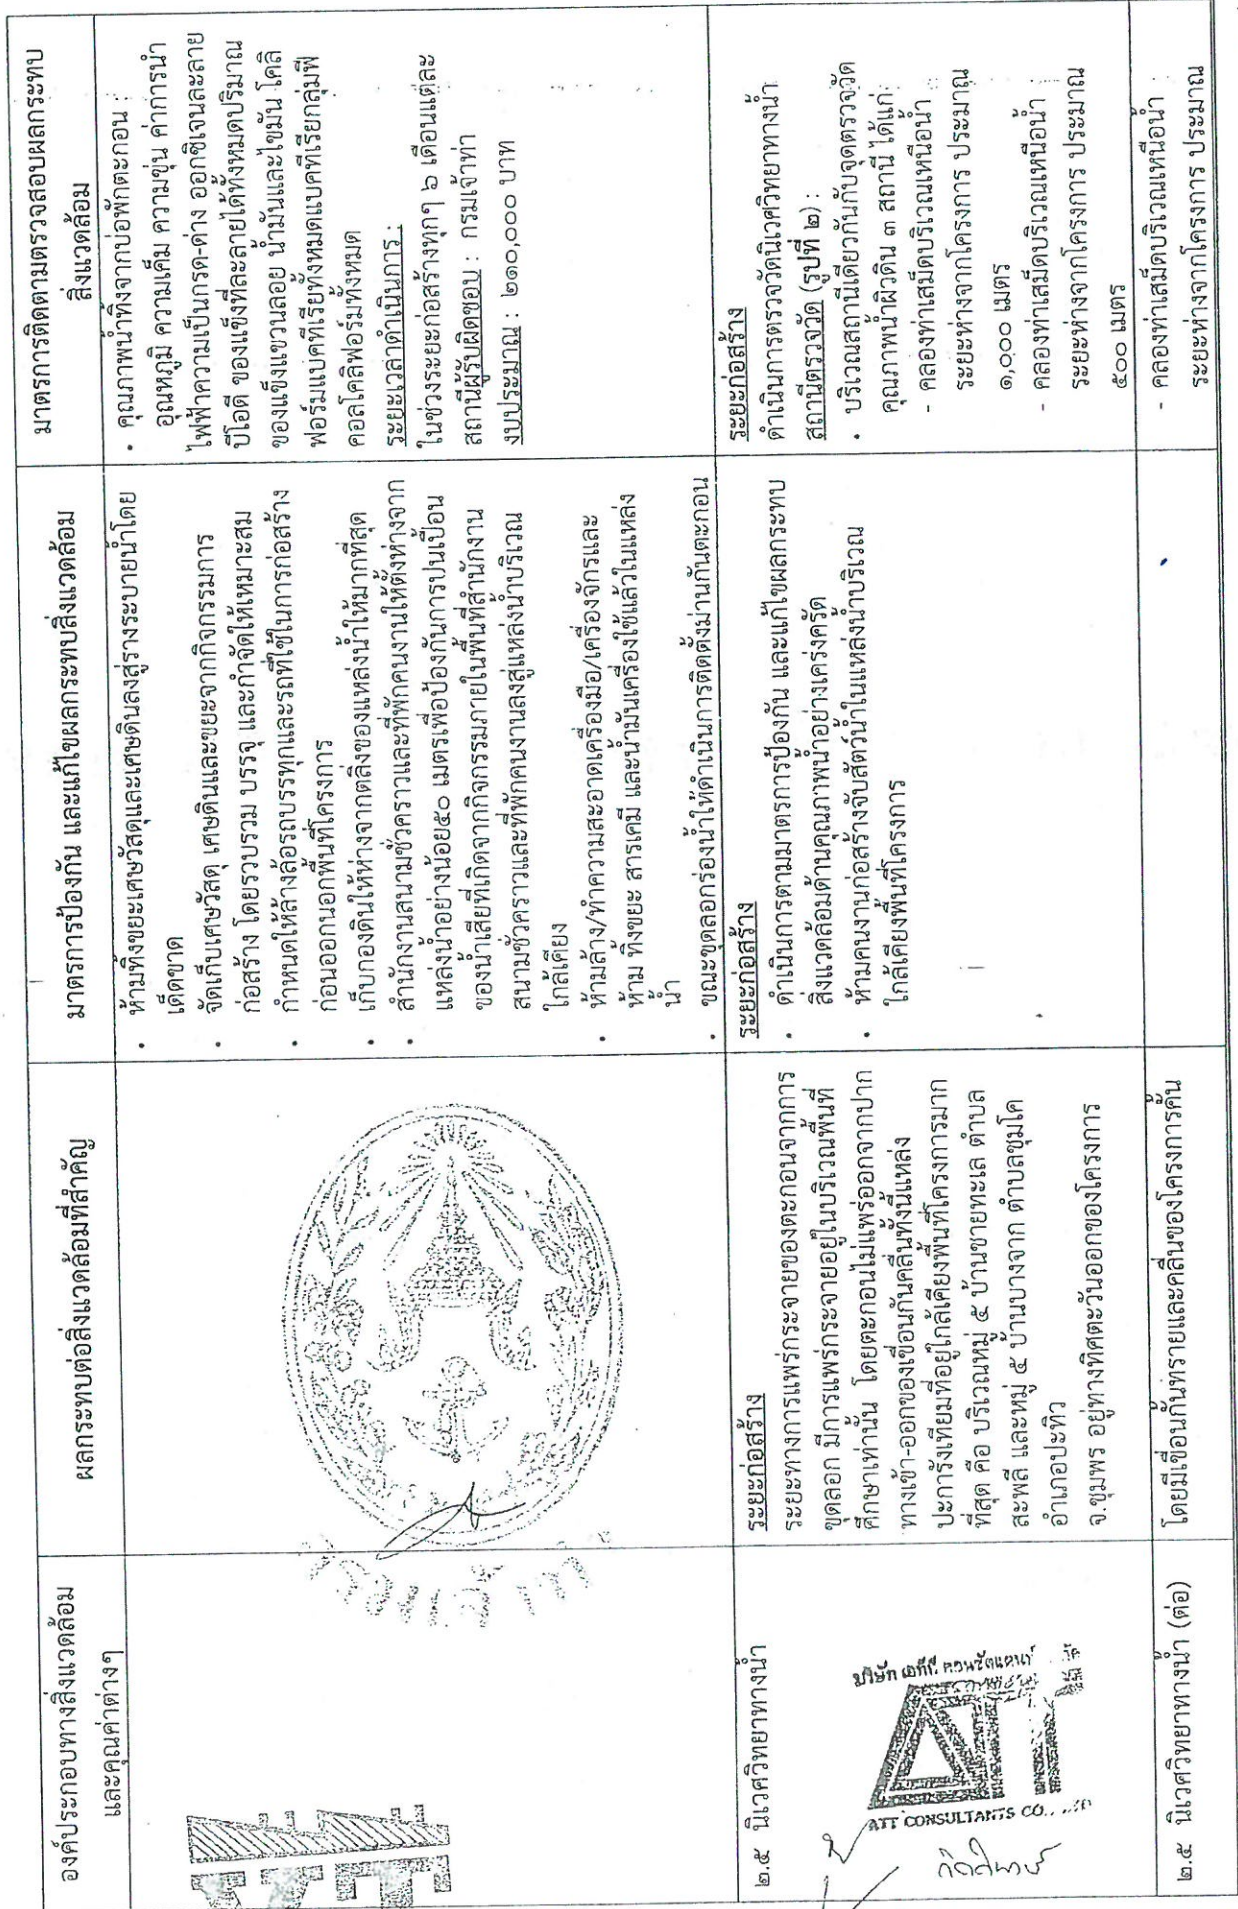 องค์ประกอบทางสิ่งแวดล้อม
และคุณค่าต่างๆ
ผลกระทบต่อสิ่งแวดล้อมที่สำคัญ
มาตรการป้องกัน และแก้ไขผลกระทบสิ่งแวดล้อม
มาตรการติดตามตรวจสอบผลกระทบ
สิ่งแวดล้อม
• ห้ามทิ้งขยะเศษวัสดุและเศษดินลงสู่รางระบายน้ำโดย
เด็ดขาด
• จัดเก็บเศษวัสดุ เศษดินและขยะจากกิจกรรมการ
ก่อสร้าง โดยรวบรวม บรรจุ และกำจัดให้เหมาะสม
• กำหนดให้ล้างล้อรถบรรทุกและรถที่ใช้ในการก่อสร้าง
ก่อนออกนอกพื้นที่โครงการ
• เก็บกองดินให้ห่างจากตลิ่งของแหล่งน้ำให้มากที่สุด
• สำนักงานสนามชั่วคราวและที่พักคนงานให้ตั้งห่างจาก
แหล่งน้ำอย่างน้อย๕๐ เมตรเพื่อป้องกันการปนเปื้อน
ของน้ำเสียที่เกิดจากกิจกรรมภายในพื้นที่สำนักงาน
สนามชั่วคราวและที่พักคนงานลงสู่แหล่งน้ำบริเวณ
ใกล้เคียง
• ห้ามล้าง/ทำความสะอาดเครื่องมือ/เครื่องจักรและ
ห้าม ทิ้งขยะ สารเคมี และน้ำมันเครื่องใช้แล้วในแหล่ง
น้ำ
• ขณะขุดลอกร่องน้ำให้ดำเนินการติดตั้งม่านกันตะกอน
• คุณภาพน้ำทิ้งจากบ่อพักตะกอน :
อุณหภูมิ ความเค็ม ความขุ่น ค่าการนำ
ไฟฟ้าความเป็นกรด-ด่าง ออกซิเจนละลาย
บีโอดี ของแข็งที่ละลายได้ทั้งหมดปริมาณ
ของแข็งแขวนลอย น้ำมันและไขมัน โคลิ
ฟอร์มแบคทีเรียทั้งหมดแบคทีเรียกลุ่มฟี
คอลโคลิฟอร์มทั้งหมด
ระยะเวลาดำเนินการ :
ในช่วงระยะก่อสร้างทุกๆ ๖ เดือนแต่ละ
สถานีผู้รับผิดชอบ : กรมเจ้าท่า
งบประมาณ : ๒๑๐,๐๐๐ บาท
๒.๕ นิเวศวิทยาทางน้ำ
ATT CONSULTANTS CO.
ระยะก่อสร้าง
ระยะทางการแพร่กระจายของตะกอนจากการ
ขุดลอก มีการแพร่กระจายอยู่ในบริเวณพื้นที่
ศึกษาเท่านั้น โดยตะกอนไม่แพร่ออกจากปาก
ทางเข้า-ออกของเขื่อนกันคลื่นทั้งนี้แหล่ง
ปะการังเทียมที่อยู่ใกล้เคียงพื้นที่โครงการมาก
ที่สุด คือ บริเวณหมู่ ๕ บ้านชายทะเล ตำบล
สะพลี และหมู่ ๕ บ้านบางจาก ตำบลชุมโค
อำเภอปะทิว
จ.ชุมพร อยู่ทางทิศตะวันออกของโครงการ
ระยะก่อสร้าง
• ดำเนินการตามมาตรการป้องกัน และแก้ไขผลกระทบ
สิ่งแวดล้อมด้านคุณภาพน้ำอย่างเคร่งครัด
• ห้ามคนงานก่อสร้างจับสัตว์น้ำในแหล่งน้ำบริเวณ
ใกล้เคียงพื้นที่โครงการ
ระยะก่อสร้าง
ดำเนินการตรวจวัดนิเวศวิทยาทางน้ำ
สถานีตรวจวัด (รูปที่ ๒) :
• บริเวณสถานีเดียวกันกับจุดตรวจวัด
คุณภาพน้ำผิวดิน ๓ สถานี ได้แก่
- คลองท่าเสม็ดบริเวณเหนือน้ำ
ระยะห่างจากโครงการ ประมาณ
๑,๐๐๐ เมตร
- คลองท่าเสม็ดบริเวณเหนือน้ำ
ระยะห่างจากโครงการ ประมาณ
๕๐๐ เมตร
๒.๕ นิเวศวิทยาทางน้ำ (ต่อ)
โดยมีเขื่อนกันทรายและคลื่นของโครงการคั่น
- คลองท่าเสม็ดบริเวณเหนือน้ำ
ระยะห่างจากโครงการ ประมาณ